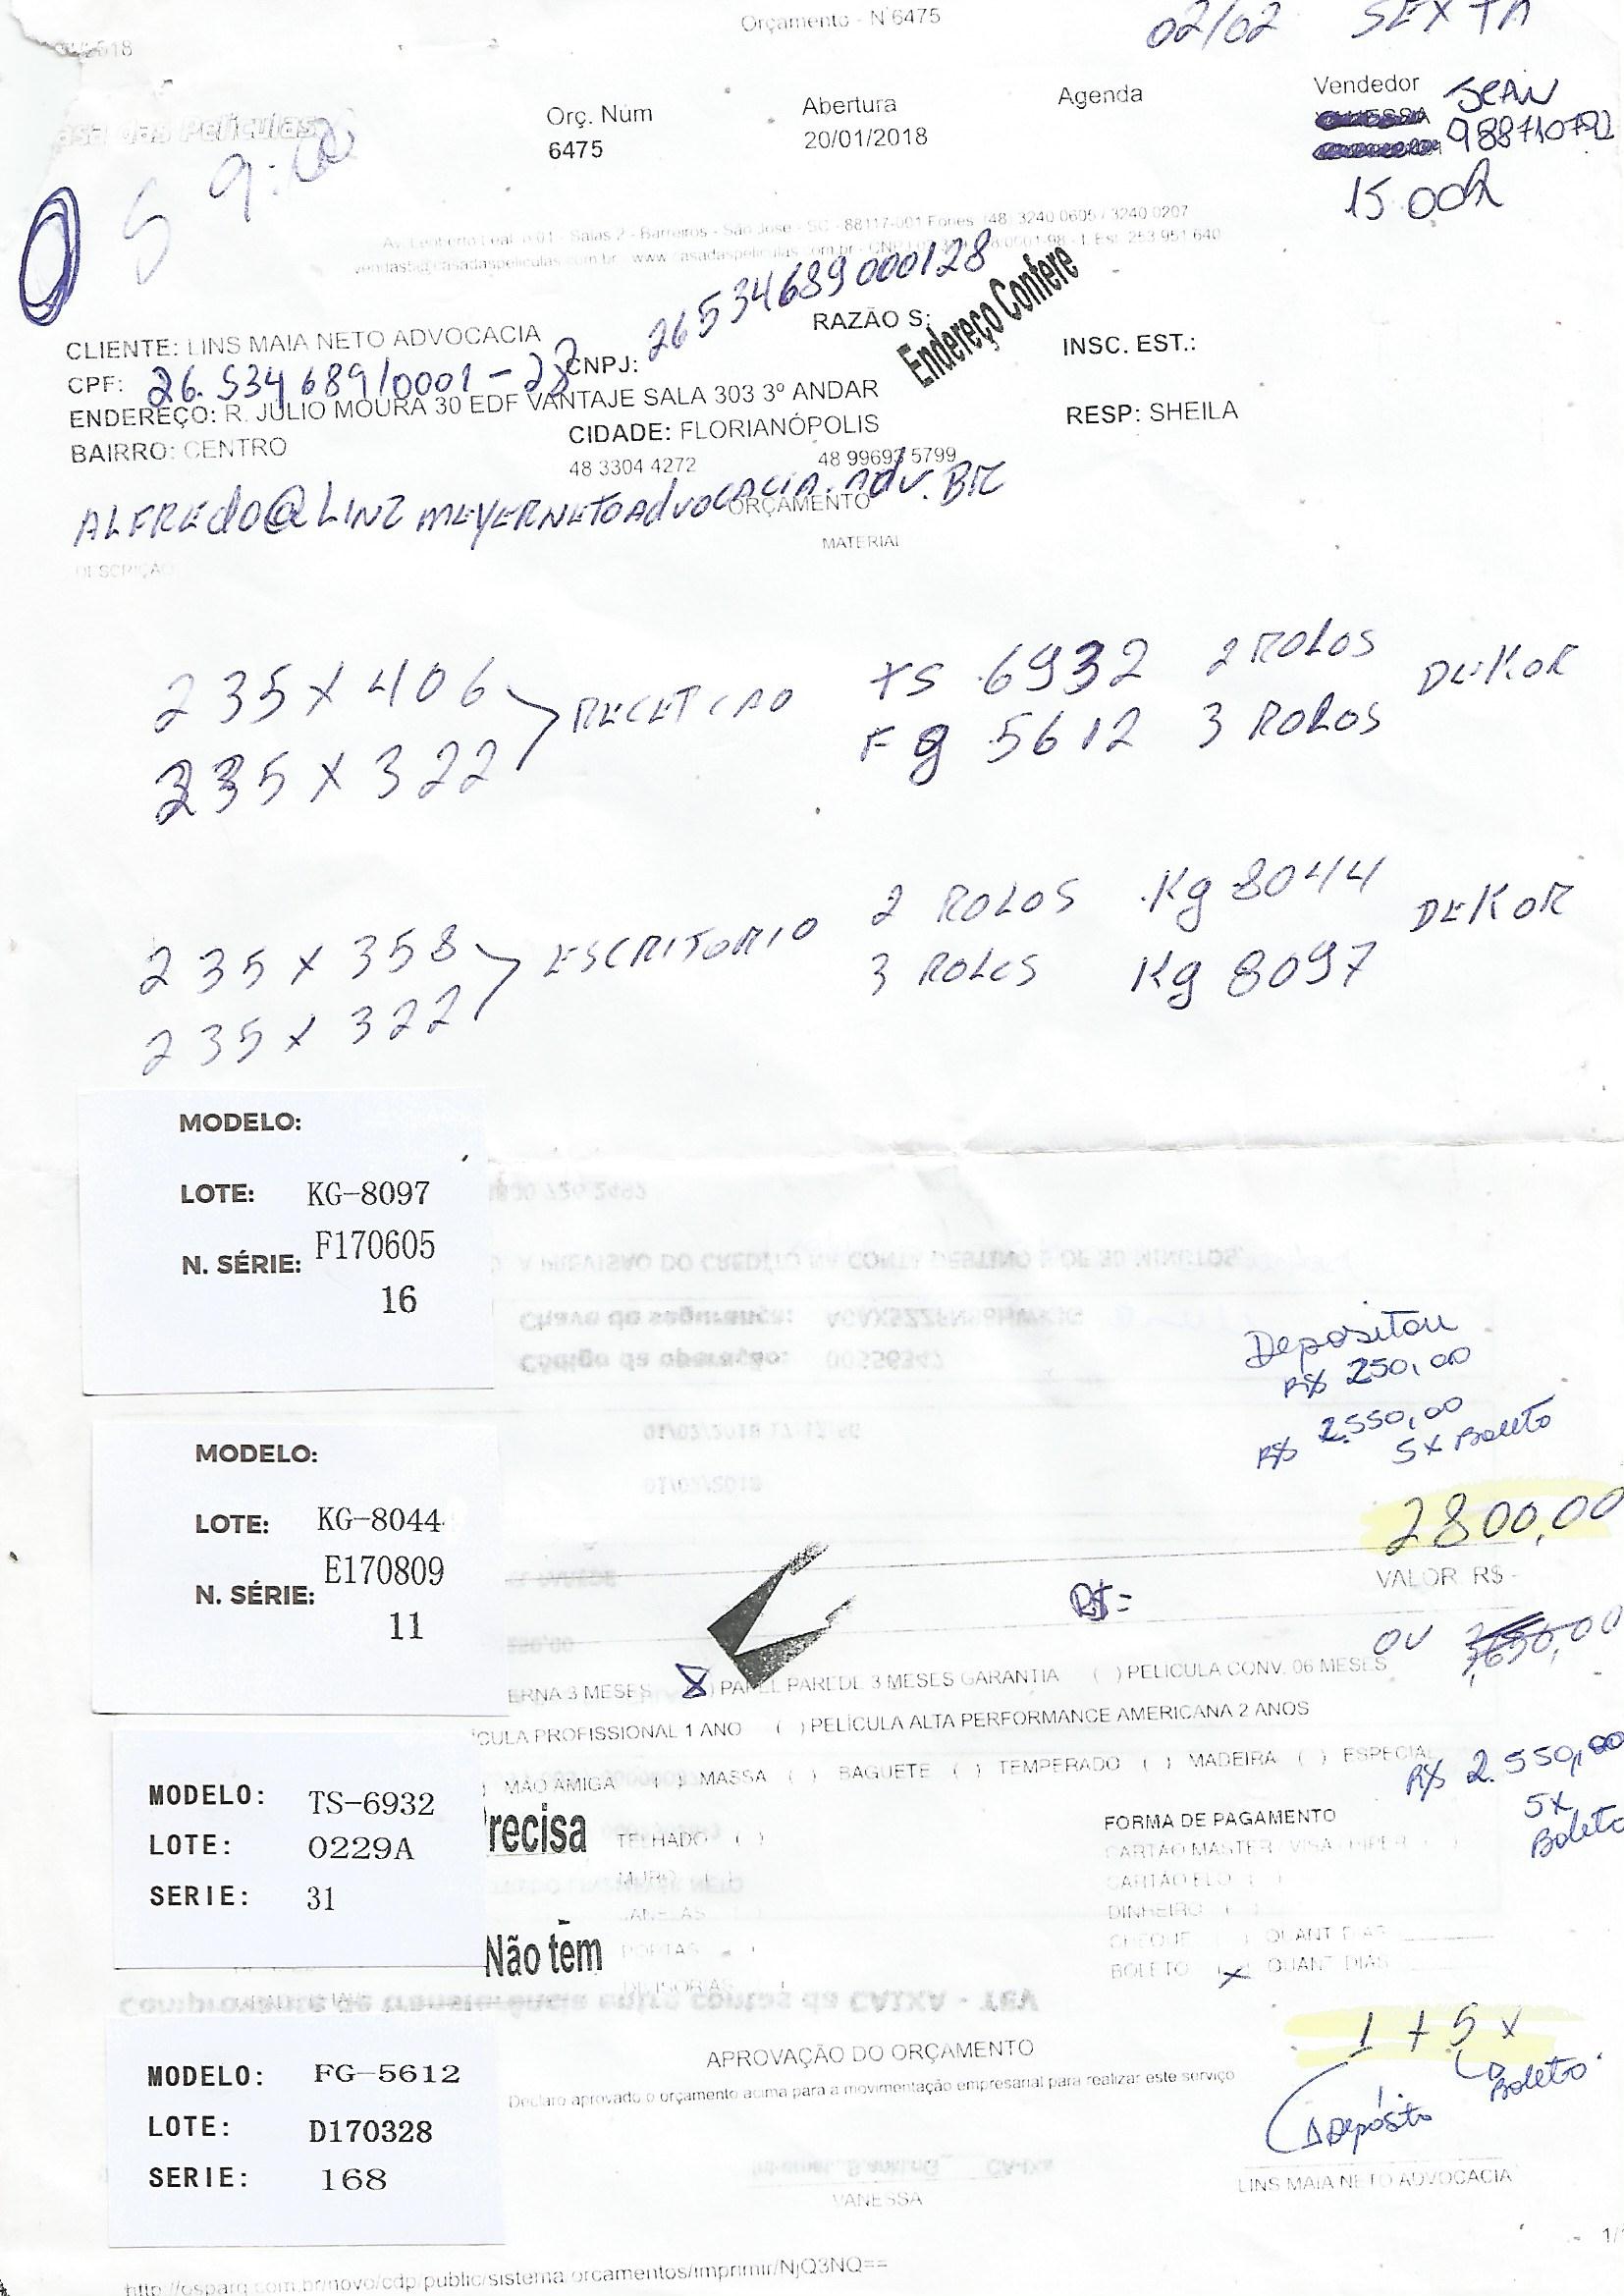 Orçamento - N°6475
02/02 SEXTA
/2018
asa das Películas
9:00
Orç. Num
6475
Abertura
20/01/2018
Agenda
Vendedor
JEAN
15:00h
Av. Leoberto Leal, n 01 - Salas 2 - Barreiros - São José - SC - 88117-001 Fones: (48) 3240 0605 / 3240 0207
www.casadaspeliculas.com.br
CLIENTE: LINS MAIA NETO ADVOCACIA
CNPJ: 26534689000128
RAZÃO S:
INSC. EST.:
Endereço Confere
CPF: 26.534689/0001-28
ENDEREÇO: R. JULIO MOURA 30 EDF VANTAJE SALA 303 3º ANDAR
RESP: SHEILA
BAIRRO: CENTRO
CIDADE: FLORIANÓPOLIS
48 3304 4272
48 99693 5799
ALFREdO@LINZmEYERNEtoAdvOCACIA.Adv.BR
ORÇAMENTO
MATERIAL
DESCRIÇÃO
235 x 406
235 x 322
RECEPCAO
TS 6932 2 ROLOS
Fg 5612 3 ROLOS
DEKOR
235 x 358
235 x 322
ESCRITORIO
2 ROLOS Kg 8044
3 ROLOS Kg 8097
DEKOR
MODELO:
LOTE: KG-8097
N. SÉRIE: F170605
16
Depositou
R$ 250,00
R$ 2.550,00
5x Boleto
MODELO:
LOTE: KG-8044
N. SÉRIE: E170809
11
2800,00
VALOR R$ -
R$=
OU
ERNA 3 MESES (X) PAPEL PAREDE 3 MESES GARANTIA ( ) PELICULA CONV. 06 MESES
CULA PROFISSIONAL 1 ANO ( ) PELÍCULA ALTA PERFORMANCE AMERICANA 2 ANOS
MÃO AMIGA ( ) MASSA ( ) BAGUETE ( ) TEMPERADO ( ) MADEIRA ( ) ESPECIAL
R$ 2.550,00
5x
Boleto
MODELO: TS-6932
LOTE: 0229A
SERIE: 31
recisa
TELHADO ( )
MURO ( )
JANELAS ( )
Não tem
PORTAS ( )
DIVISORIAS ( )
FORMA DE PAGAMENTO
CARTÃO MASTER / VISA / HIPER ( )
CARTÃO ELO ( )
DINHEIRO ( )
CHEQUE ( ) QUANT DIAS
BOLETO (X) QUANT DIAS
1 + 5x
Boleto
Depósito
MODELO: FG-5612
LOTE: D170328
SERIE: 168
APROVAÇÃO DO ORÇAMENTO
Declaro aprovado o orçamento acima para a movimentação empresarial para realizar este serviço
VANESSA
LINS MAIA NETO ADVOCACIA
1/
http://osparq.com.br/novo/cdp/public/sistema/orcamentos/imprimir/NjQ3NQ==